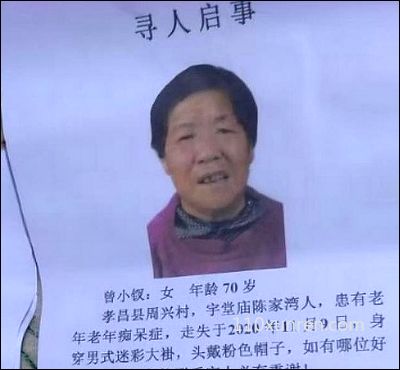 寻人启事
曾小钗：女 年龄 70 岁
孝昌县周兴村，宇堂庙陈家湾人，患有老
年老年痴呆症，走失于2020年 月 9 日，身
穿男式迷彩大褂，头戴粉色帽子，如有哪位好